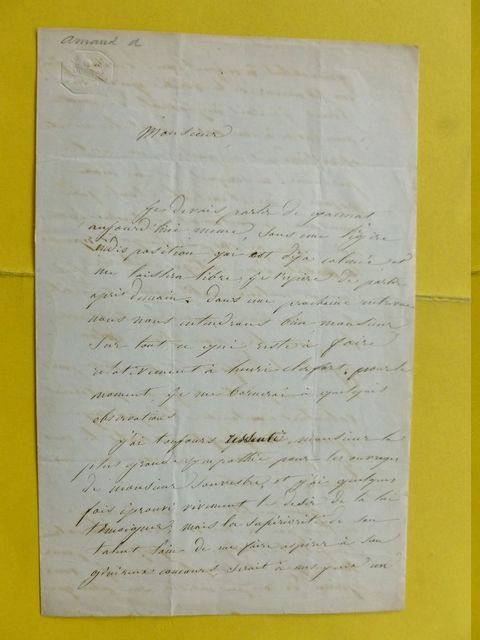 Amand d
Monsieur
Je devais partir de
aujourd'hui même, sans une légère
indisposition qui est déjà calmée et
me laissera libre, je l'espère de partir
après demain. Dans une prochaine entrevue
nous nous entendrons bien monsieur
sur tout ce qui reste à faire
relativement à henri pour le
moment, je me bornerai à quelques
observations
j'ai toujours ressenti, monsieur la
plus grande sympathie pour les ouvrages
de monsieur Souvestre, et j'ai quelques
fois éprouvé vivement le désir de la lui
témoigner, mais la supériorité de son
talent loin de me faire aspirer à son
généreux concours, serait à mes yeux un